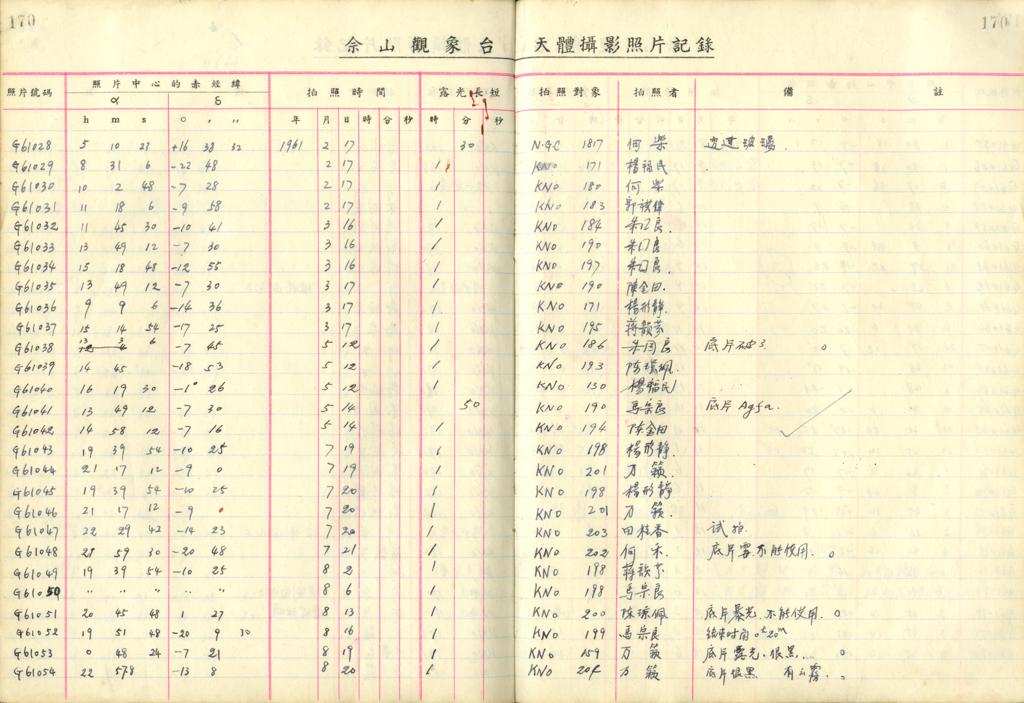 170
170
佘山觀象台 天體攝影照片記錄
照片號碼 照片中心的赤經緯 拍照時間 露光長短 拍照對象 拍照者 備註
α δ
h m s ○ ′ ″ 年 月 日 時 分 秒 時 分 秒
G61028 5 10 23 +16 38 32 1961 2 17 30 N.G.C 1817 何
G61029 8 31 6 -22 48 2 17 1 KNO 171 楊福民
G61030 10 2 48 -7 28 2 17 1 KNO 180 何
G61031 11 18 6 -9 58 2 17 1 KNO 183
G61032 11 45 30 -10 41 3 16 1 KNO 184 良
G61033 13 49 12 -7 30 3 16 1 KNO 190 良
G61034 15 18 48 -12 55 3 16 1 KNO 197 良
G61035 13 49 12 -7 30 3 17 1 KNO 190 陳金田
G61036 9 9 6 -14 36 3 17 1 KNO 171 楊彤靜
G61037 15 14 54 -17 25 3 17 1 KNO 195 蔣
G61038 13 3 6 -7 45 5 12 1 KNO 186 良 底片
G61039 14 45 -18 53 5 12 1 KNO 193
G61040 16 19 30 -1° 26 5 12 1 KNO 130 楊福民
G61041 13 49 12 -7 30 5 14 50 KNO 190 馬宗良 底片 Agfa.
G61042 14 58 12 -7 16 5 14 1 KNO 194 陳金田
G61043 19 39 54 -10 25 7 19 1 KNO 198 楊彤靜
G61044 21 17 12 -9 0 7 19 1 KNO 201 万籟
G61045 19 39 54 -10 25 7 20 1 KNO 198 楊彤靜
G61046 21 17 12 -9 7 20 1 KNO 201 万籟
G61047 22 29 42 -14 23 7 20 1 KNO 203 香 試拍
G61048 59 30 -20 48 7 21 1 KNO 202 何 底片霧不能使用。
G61049 19 39 54 -10 25 8 2 1 KNO 198 蔣
G61050 〃 〃 〃 〃 〃 8 6 1 KNO 198 馬宗良
G61051 20 45 48 1 27 8 13 1 KNO 200 陳琼佩 底片暴光.不能使用。
G61052 19 51 48 -20 9 30 8 16 1 KNO 199 馬宗良 結束时角 0ʰ20ᵐ
G61053 0 48 24 -7 21 8 19 1 KNO 159 万籟 底片露光.很黑
G61054 22 57.8 -13 8 8 20 1 KNO 204 万籟 底片很黑 有霧。